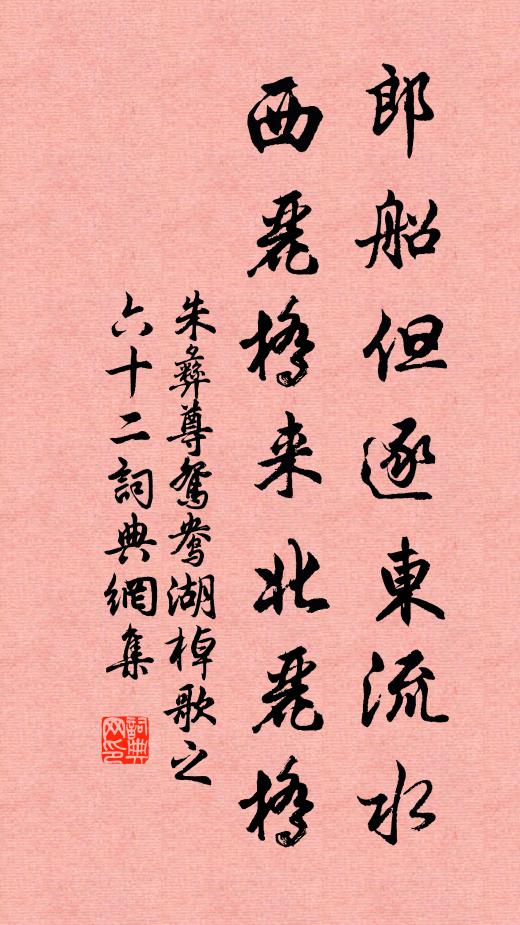 郎船但逐東流水
西麗橋来北麗橋
朱彝尊鴛鴦湖棹歌之
六十二詞典網集
詞典
网印